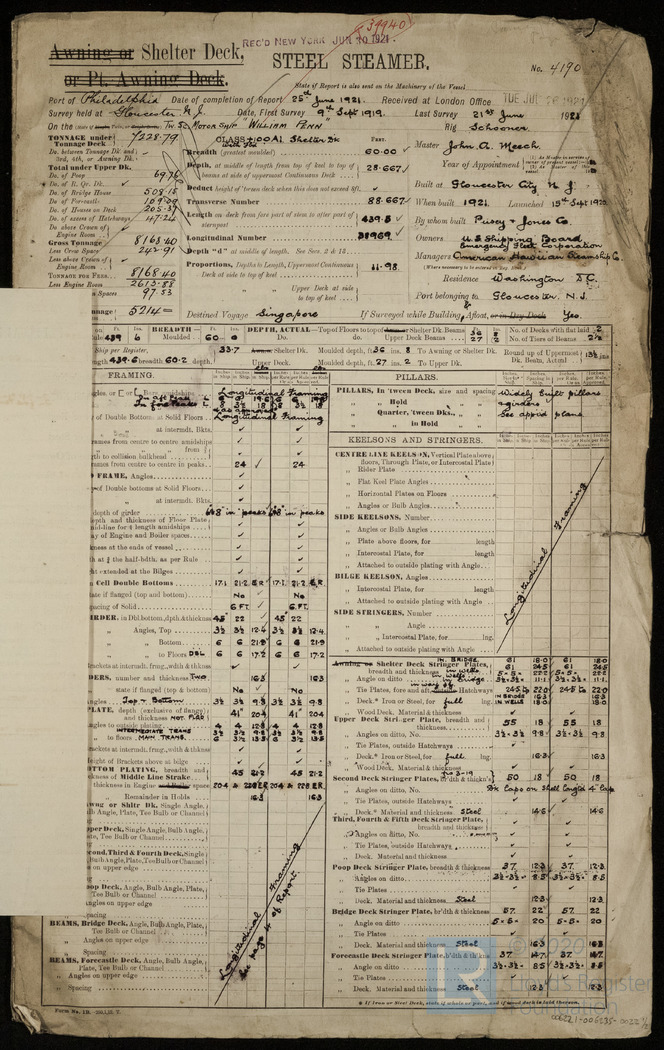 39940
Awning or Shelter Deck,
or Pt. Awning Deck.
REC'D NEW YORK JUN 10 1921
STEEL STEAMER.
No. 4190
State if Report is also sent on the Machinery of the Vessel
Port of Philadelphia Date of completion of Report 25th June 1921. Received at London Office TUE JUN
Survey held at Gloucester N.J. Date, First Survey 9th Sept 1919. Last Survey 21st June 1921
On the Tw. Sc. Motor Ship "William Penn" Rig Schooner
TONNAGE under Tonnage Deck 7228.79
Do. between Tonnage Dk and 3rd, 4th, or Awning Dk.
Total under Upper Dk.
Do. of Poop 69.76
Do. of R. Qr. Dk.
Do. of Bridge House 508.15
Do. of Forecastle 109.09
Do. of Houses on Deck 205.37
Do. of excess of Hatchways 147.24
Do. above Crown of Engine Room
Gross Tonnage 8163.40
Less Crew Space 242.91
Less above Crown of Engine Room
TONNAGE FOR FEES 8168.40
Less Engine Room 2613.88
Spaces 97.53
5214
CLASS 100A1 Shelter Dk
Breadth (greatest moulded) 60.00
Depth, at middle of length from top of keel to top of beams at side of uppermost Continuous Deck 28.667
Deduct height of 'tween deck when this does not exceed 8ft.
Transverse Number 88.667
Length on deck from fore part of stem to after part of sternpost 439.5
Longitudinal Number 38969
Depth "d" at middle of length. See Secs. 2 & 13
Proportions, Depths to Length, Uppermost Continuous Deck at side to top of keel 11.98
Upper Deck at side to top of keel
Master John A. Meech
Year of Appointment
Built at Gloucester City N.J.
When built 1921. Launched 15th Sept 1920
By whom built Pusey & Jones Co.
Owners U.S. Shipping Board Emergency Fleet Corporation
Managers American Hawaiian Steamship Co
(Where necessary to be entered in Reg. Book.)
Residence Washington D.C.
Port belonging to Gloucester. N.J.
Destined Voyage Singapore If Surveyed while Building, Afloat, or in Dry Dock Yes.
439 6 BREADTH— 60 0 DEPTH, ACTUAL—Top of Floors to top of Shelter Dk. Beams 36 8 No. of Decks with flat laid 2
Do. Do. Upper Deck Beams 27 2 No. of Tiers of Beams 2
Ship per Register, 33.7 Shelter Dk. Moulded depth, ft 36 ins 8 To Awning or Shelter Dk. Round up of Uppermost Dk. Beam, Actual 13½ ins
439.6 breadth 60.2 depth. Upper Deck. Moulded depth, ft 27 ins. 2 To Upper Dk.
FRAMING.
Longitudinal Framing
In aft Peak
In fore Peak
Longitudinal Framing
of Double Bottom at Solid Floors
at intermdt. Bkts.
frames from centre to centre amidships
length to collision bulkhead
frames from centre to centre in peaks 24 24
FRAME, Angles
of Double bottoms at Solid Floors
at intermdt. Bkts.
depth of girder in peaks in peaks
depth and thickness of Floor Plate
mid-line for ¾ length amidships
way of Engine and Boiler spaces
thickness at the ends of vessel
th at ¾ the half-bdth. as per Rule
ht extended at the Bilges
in Cell Double Bottoms 17.1 21.2 ER 17.1 21.2 ER
state if flanged (top and bottom) No No
Spacing of Solid 6 FT. 6 FT.
GIRDER, in Dbl. bottom, dpth & thickness 45 22 45 22
Angles, Top 3½ 3½ 12.4 3½ 3½ 12.4
Bottom 6 6 21.9 6 6 21.9
to Floors DBL 6 6 17.2 6 6 17.2
Brackets at intermdt. frmg., wdth & thkns
GIRDERS, number and thickness TWO 16.3 16.3
state if flanged (top and bottom) No No
Angles Top & Bottom 3½ 3½ 9.8 3½ 3½ 9.8
PLATE, depth (exclusive of flange) and thickness NOT FLGD 41 20.4 41 20.4
Angles to outside plating 4 4 12.8 4 4 12.8
INTERMEDIATE TRANS 3½ 3½ 9.8 3½ 3½ 9.8
to floors MAIN TRANS. 6 3½ 13.5 6 3½ 13.5
Brackets at intermdt. frmg., wdth & thkns
Height of Brackets above at bilge
BOTTOM PLATING, breadth and thickness of Middle Line Strake 45 21.2 45 21.2
thickness in Engine and Boiler space 20.4 & 22.8 ER. 20.4 & 22.8 ER.
Remainder in Holds 16.3 16.3
Awng or Shltr Dk. Single Angle, Bulb Angle, Plate, Tee Bulb or Channel
Upper Deck, Single Angle, Bulb Angle, Plate, Tee Bulb or Channel
Second, Third & Fourth Deck, Single Angle, Bulb Angle, Plate, Tee Bulb or Channel
Angles on upper edge
Poop Deck, Angle, Bulb Angle, Plate, Tee Bulb or Channel
Angles on upper edge
Spacing
BEAMS, Bridge Deck, Angle, Bulb Angle, Plate, Tee Bulb or Channel
Angles on upper edge
Spacing
BEAMS, Forecastle Deck, Angle, Bulb Angle, Plate, Tee Bulb or Channel
Angles on upper edge
Spacing
Longitudinal Framing
See page 4 of Report.
Form No. 1B.
PILLARS.
PILLARS, In 'tween Deck, size and spacing Widely built pillars
Hold & girders
Quarter, 'tween Dks., See appd plans
in Hold
KEELSONS AND STRINGERS.
CENTRE LINE KEELSON, Vertical Plate above floors, Through Plate, or Intercostal Plate
Rider Plate
Flat Keel Plate Angles
Horizontal Plates on Floors
Angles or Bulb Angles
SIDE KEELSONS, Number
Angles or Bulb Angles
Plate above floors, for length
Intercostal Plate, for length
Attached to outside plating with Angle
BILGE KEELSON, Angles
Intercostal Plate, for length
Attached to outside plating with Angle
SIDE STRINGERS, Number
Angle
Intercostal Plate, for lng.
Attached to outside plating with Angle
Longitudinal Framing
Awning or Shelter Deck Stringer Plates, breadth and thickness IN. BRIDGE 61 18.0 61 18.0
in wells 61 24.5 61 24.5
Angle on ditto in wells 5.5 22 5.5 22
in Bridge 3½.3½ 11.1 3½.3½ 11.1
Tie Plates, fore and aft, outside Hatchways in way of 24.5 to 22.0 24.5 to 22.0
Deck.* Iron or Steel, for full lng. IN BRIDGE 16.3 16.3
IN WELLS 18.0 18.0
Wood Deck, Material & thickness
Upper Deck Stringer Plate, breadth and thickness 55 18 55 18
Angles on ditto, No. 3½.3½ 9.8 3½.3½ 9.8
Tie Plates, outside Hatchways
Deck.* Iron or Steel, for full lng. 16.3 16.3
Wood Deck, Material & thickness
Second Deck Stringer Plates, b'dth & thckn's 50 18 50 18
Angles on ditto, No.
Tie Plates, outside Hatchways
Deck.* Material and thickness Steel 14.6 14.6
Third, Fourth & Fifth Deck Stringer Plate, breadth and thickness
Angles on ditto, No.
Tie Plates, outside Hatchways
Deck. Material and thickness
Poop Deck Stringer Plate, breadth & thickness 37 12.3 37 12.3
Angles on ditto 3½.3½ 8.5 3½.3½ 8.5
Tie Plates
Deck. Material and thickness Steel 12.3 12.3
Bridge Deck Stringer Plate, br'dth & thickness 57 22 57 22
Angle on ditto 5.5 20 5.5 20
Tie Plates
Deck. Material and thickness Steel 16.3 16.3
Forecastle Deck Stringer Plate, b'dth & th'kns 37 14.7 37 14.7
Angle on ditto 3½.3½ 8.5 3½.3½ 8.5
Tie Plates
Deck. Material and thickness Steel 12.3 12.3
* If Iron or Steel Deck, state if whole or part, and if wood deck is laid thereon.
© 2020
Lloyd's Register
Foundation
006221-006235-0022 ½